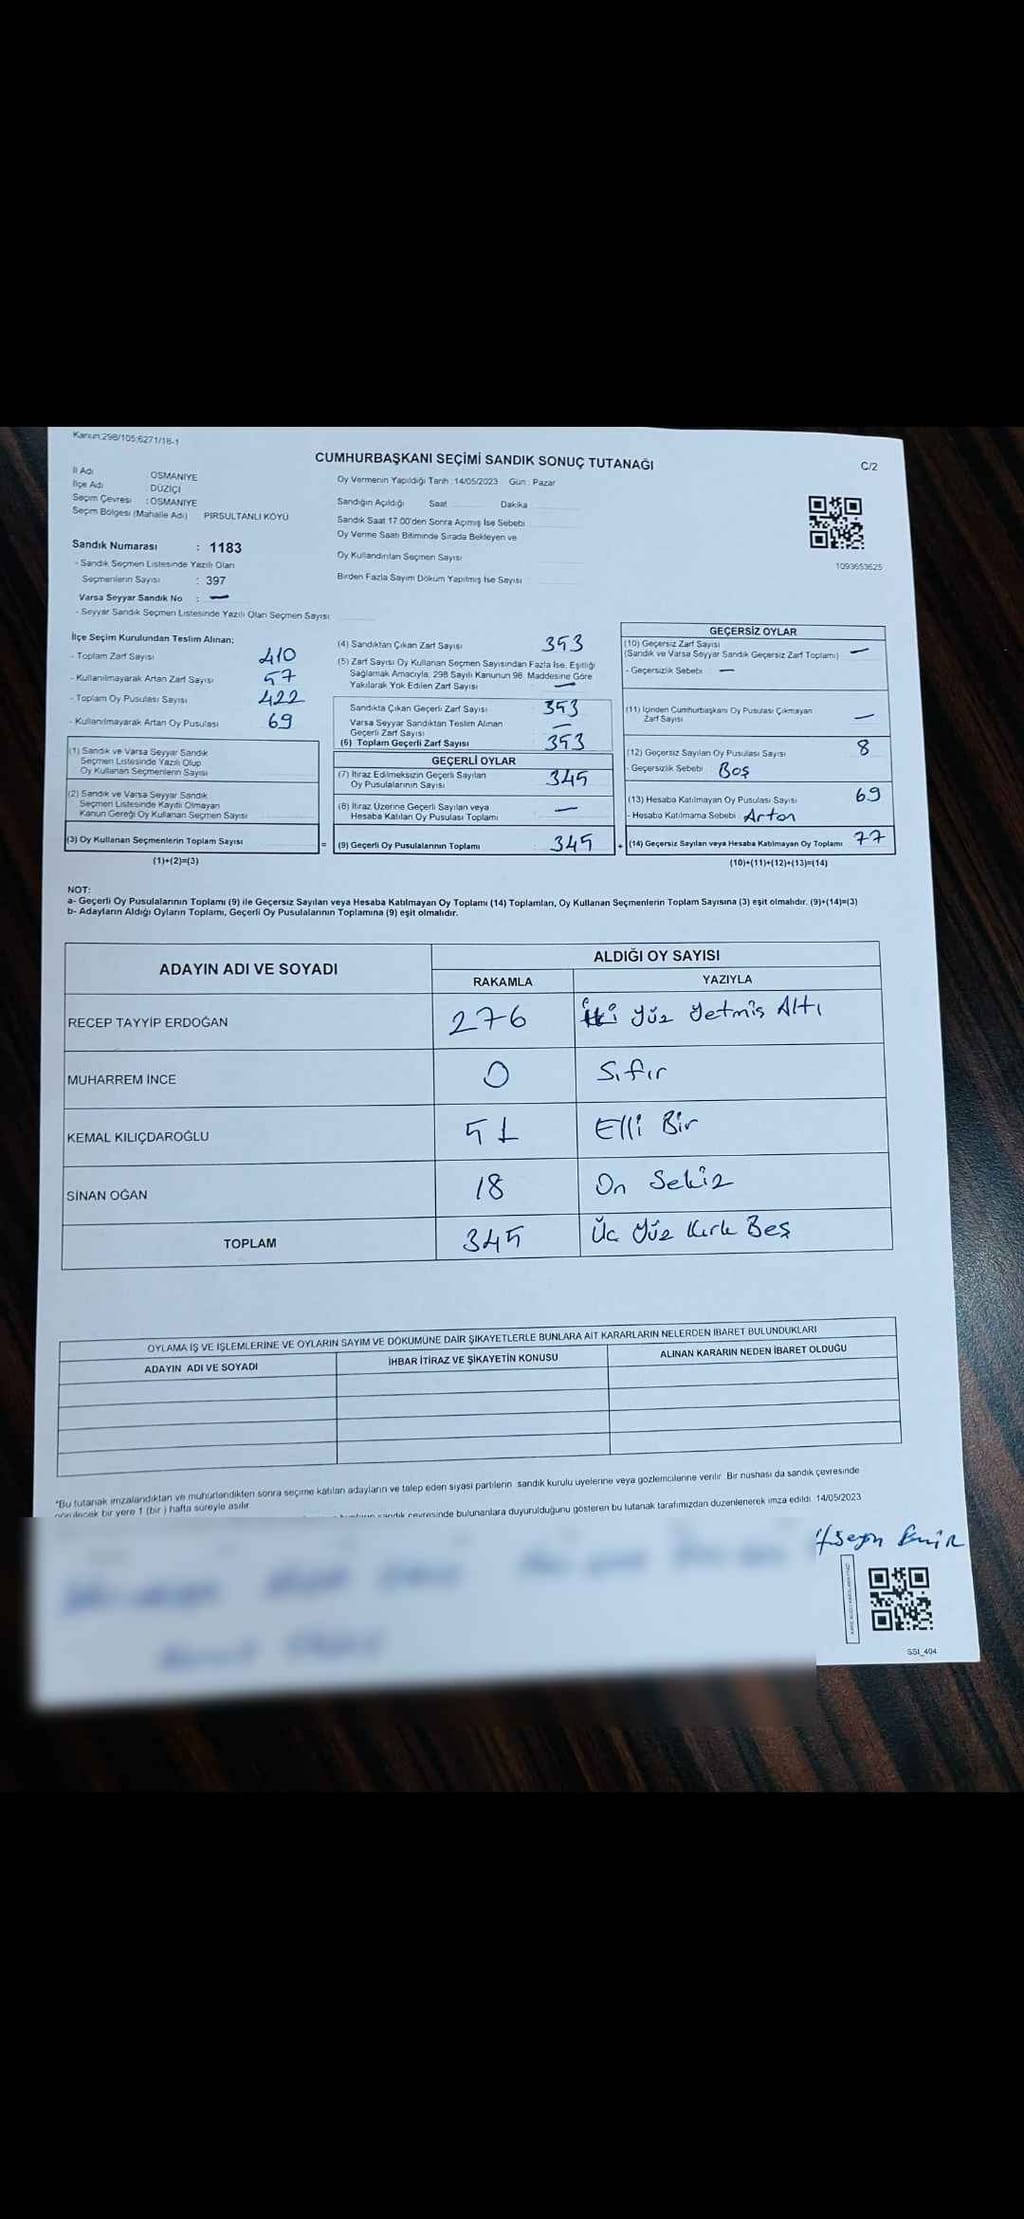 Kanun:298/105;6271/18-1
CUMHURBAŞKANI SEÇİMİ SANDIK SONUÇ TUTANAĞI
C/2
İl Adı OSMANİYE
İlçe Adı DÜZİÇİ
Seçim Çevresi : OSMANİYE
Seçim Bölgesi (Mahalle Adı) PİRSULTANLI KÖYÜ
Sandık Numarası : 1183
- Sandık Seçmen Listesinde Yazılı Olan
Seçmenlerin Sayısı : 397
Varsa Seyyar Sandık No : —
- Seyyar Sandık Seçmen Listesinde Yazılı Olan Seçmen Sayısı
Oy Vermenin Yapıldığı Tarih : 14/05/2023 Gün : Pazar
Sandığın Açıldığı Saat Dakika
Sandık Saat 17.00'den Sonra Açımış İse Sebebi
Oy Verme Saati Bitiminde Sırada Bekleyen ve
Oy Kullandırılan Seçmen Sayısı
Birden Fazla Sayım Döküm Yapılmış İse Sayısı
1093653625
İlçe Seçim Kurulundan Teslim Alınan:
- Toplam Zarf Sayısı 410
- Kullanılmayarak Artan Zarf Sayısı 57
- Toplam Oy Pusulası Sayısı 422
- Kullanılmayarak Artan Oy Pusulası 69
(1) Sandık ve Varsa Seyyar Sandık
Seçmen Listesinde Yazılı Olup
Oy Kullanan Seçmenlerin Sayısı
(2) Sandık ve Varsa Seyyar Sandık
Seçmen Listesinde Kayıtlı Olmayan
Kanun Gereği Oy Kullanan Seçmen Sayısı
(3) Oy Kullanan Seçmenlerin Toplam Sayısı
=
(1)+(2)=(3)
(4) Sandıktan Çıkan Zarf Sayısı 353
(5) Zarf Sayısı Oy Kullanan Seçmen Sayısından Fazla İse, Eşitliği
Sağlamak Amacıyla, 298 Sayılı Kanunun 98. Maddesine Göre
Yakılarak Yok Edilen Zarf Sayısı —
Sandıkta Çıkan Geçerli Zarf Sayısı 353
Varsa Seyyar Sandıktan Teslim Alınan
Geçerli Zarf Sayısı —
(6) Toplam Geçerli Zarf Sayısı 353
GEÇERLİ OYLAR
(7) İtiraz Edilmeksizin Geçerli Sayılan
Oy Pusulalarının Sayısı 345
(8) İtiraz Üzerine Geçerli Sayılan veya
Hesaba Katılan Oy Pusulası Toplamı —
(9) Geçerli Oy Pusulalarının Toplamı 345
+
GEÇERSİZ OYLAR
(10) Geçersiz Zarf Sayısı
(Sandık ve Varsa Seyyar Sandık Geçersiz Zarf Toplamı) —
- Geçersizlik Sebebi —
(11) İçinden Cumhurbaşkanı Oy Pusulası Çıkmayan
Zarf Sayısı —
(12) Geçersiz Sayılan Oy Pusulası Sayısı 8
- Geçersizlik Sebebi Boş
(13) Hesaba Katılmayan Oy Pusulası Sayısı 69
- Hesaba Katılmama Sebebi Artan
(14) Geçersiz Sayılan veya Hesaba Katılmayan Oy Toplamı 77
(10)+(11)+(12)+(13)=(14)
NOT:
a- Geçerli Oy Pusulalarının Toplamı (9) ile Geçersiz Sayılan veya Hesaba Katılmayan Oy Toplamı (14) Toplamları, Oy Kullanan Seçmenlerin Toplam Sayısına (3) eşit olmalıdır. (9)+(14)=(3)
b- Adayların Aldığı Oyların Toplamı, Geçerli Oy Pusulalarının Toplamına (9) eşit olmalıdır.
ADAYIN ADI VE SOYADI ALDIĞI OY SAYISI
RAKAMLA YAZIYLA
RECEP TAYYİP ERDOĞAN 276 İki Yüz Yetmiş Altı
MUHARREM İNCE 0 Sıfır
KEMAL KILIÇDAROĞLU 51 Elli Bir
SİNAN OĞAN 18 On Sekiz
TOPLAM 345 Üç Yüz Kırk Beş
OYLAMA İŞ VE İŞLEMLERİNE VE OYLARIN SAYIM VE DÖKÜMÜNE DAİR ŞİKAYETLERLE BUNLARA AİT KARARLARIN NELERDEN İBARET BULUNDUKLARI
ADAYIN ADI VE SOYADI İHBAR İTİRAZ VE ŞİKAYETİN KONUSU ALINAN KARARIN NEDEN İBARET OLDUĞU
*Bu tutanak imzalandıktan ve mühürlendikten sonra seçime katılan adayların ve talep eden siyasi partilerin sandık kurulu üyelerine veya gözlemcilerine verilir. Bir nüshası da sandık çevresinde
görülecek bir yere 1 (bir ) hafta süreyle asılır.
sandık çevresinde bulunanlara duyurulduğunu gösteren bu tutanak tarafımızdan düzenlenerek imza edildi. 14/05/2023
SSI_404